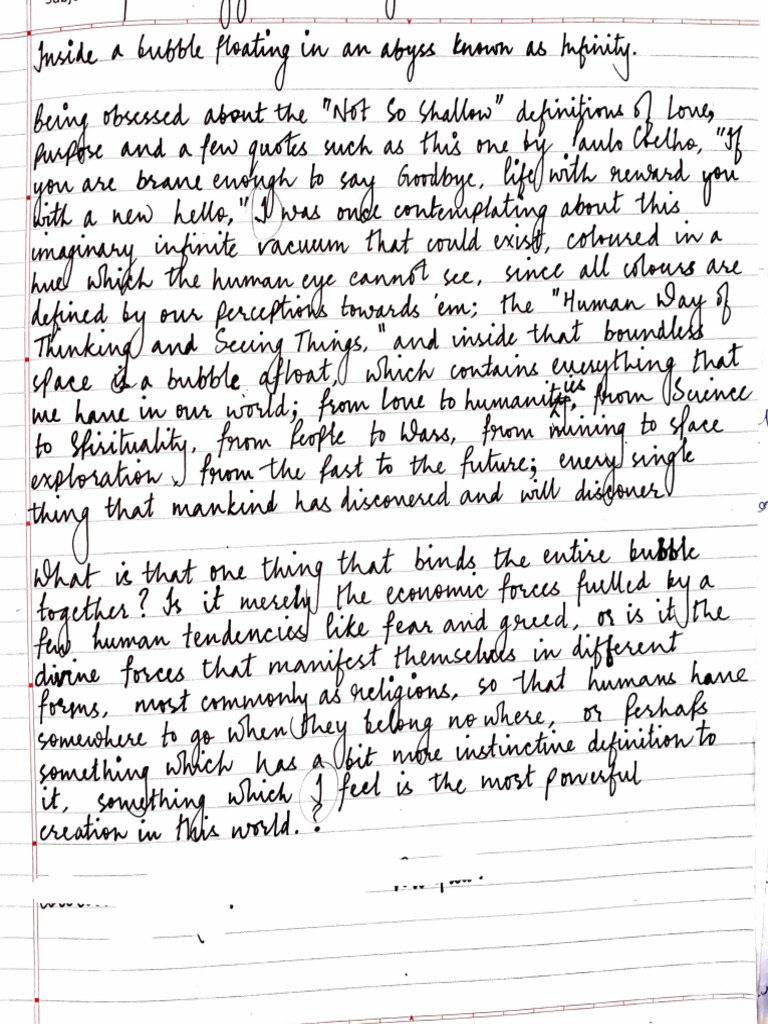 Inside a bubble floating in an abyss known as Infinity.
Being obsessed about the "Not So Shallow" definitions of Love,
purpose and a few quotes such as this one by Paulo Coelho, "If
you are brave enough to say Goodbye, life with reward you
with a new hello," I was once contemplating about this
imaginary infinite vacuum that could exist, coloured in a
hue which the human eye cannot see, since all colours are
defined by our perceptions towards 'em; the "Human Way of
Thinking and Seeing Things," and inside that boundless
space is a bubble afloat, which contains everything that
we have in our world; from love to humanities, from Science
to Spirituality, from People to Wars, from mining to space
exploration, from the past to the future; every single
thing that mankind has discovered and will discover
What is that one thing that binds the entire bubble
together? Is it merely the economic forces fuelled by a
few human tendencies like fear and greed, or is it the
divine forces that manifest themselves in different
forms, most commonly as religions, so that humans have
somewhere to go when they belong nowhere, or perhaps
something which has a bit more instinctive definition to
it, something which I feel is the most powerful
creation in this world.?